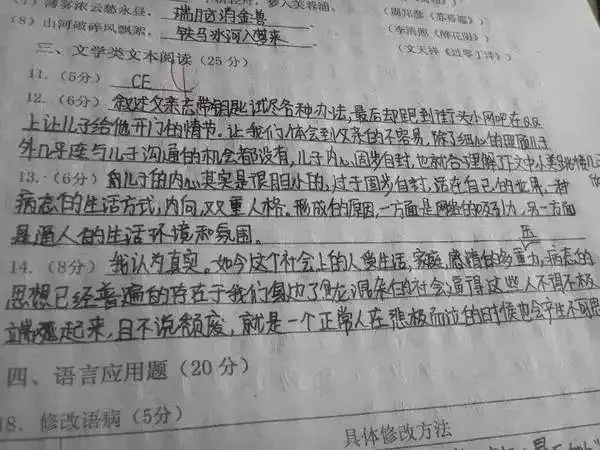 (7) 薄雾浓云愁永昼, 瑞脑消金兽
(周邦彦《苏幕遮》)
(8) 山河破碎风飘絮, 铁马冰河入梦来
(李清照《醉花阴》)
(文天祥《过零丁洋》)
三、文学类文本阅读 (25 分)
11. (5分) CE
12. (6分) 叙述父亲忘带钥匙试尽各种办法,最后却跑到街头小网吧在QQ
上让儿子给他开门的情节。让我们体会到父亲的不容易,除了细心的照顾
外几乎连与儿子沟通的机会都没有,儿子内心固步自封,也就合理解了文中小美
13. (6分) 儿子的内心其实是很胆小的,过于固步自封,活在自己的世界,一种
病态的生活方式,内向,双重人格。形成的原因,一方面是网络的吸引力,另一方面
是逼人的生活环境和氛围。
14. (8分) 我认为真实。如今这个社会上的人受生活,家庭,感情的多重压力,病态的
思想已经普遍的存在于我们身边了,混杂的社会逼得这些人不得不极
端起来,且不说颓废,就是一个正常人在悲极而泣的时候也会产生不可思
四、语言应用题 (20 分)
18. 修改语病 (5分)
具体修改方法